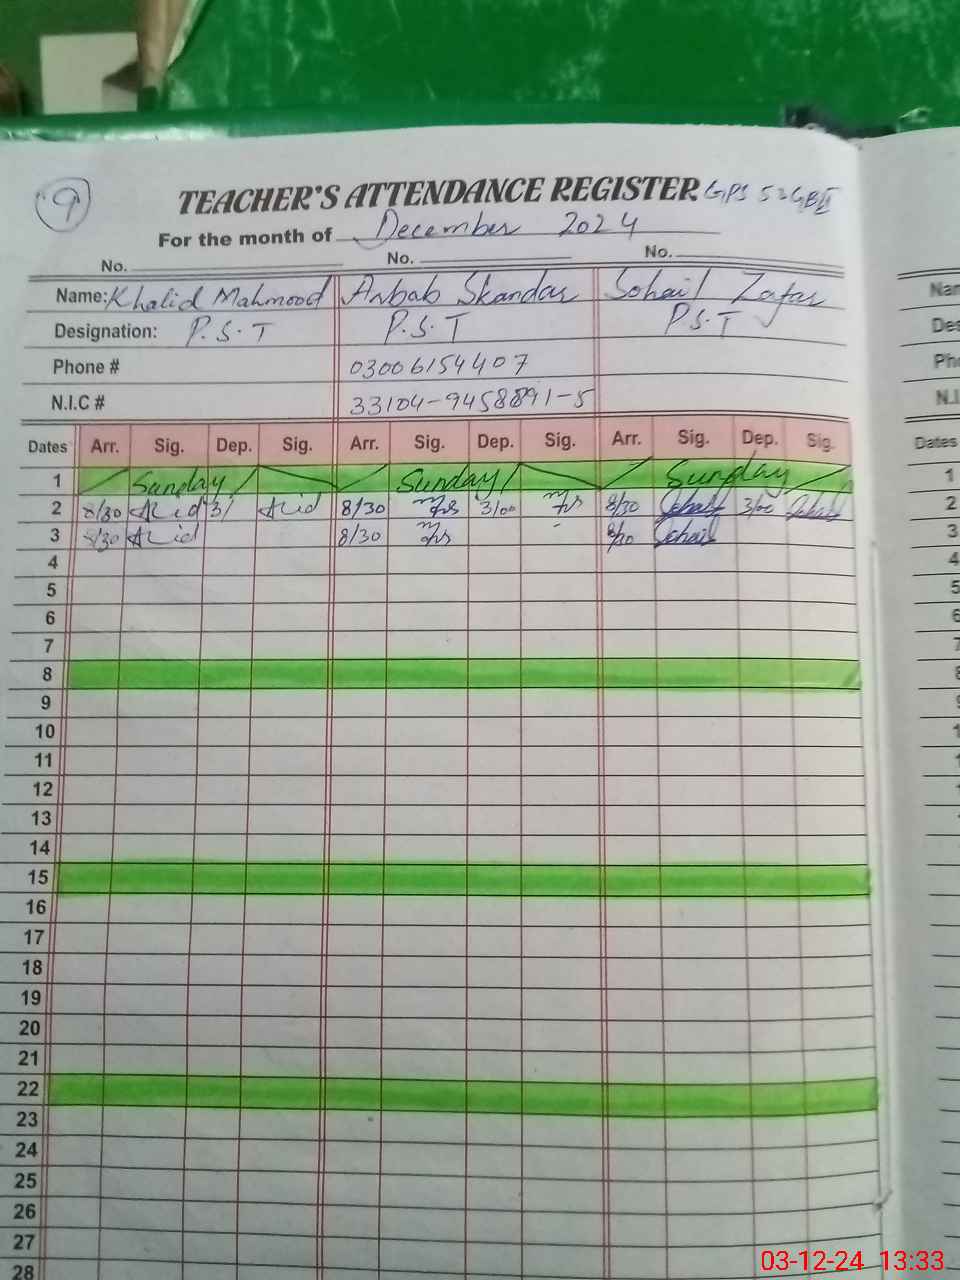 9
TEACHER'S ATTENDANCE REGISTER GPS 53GBII
For the month of December 2024
No. No. No.
Name: Khalid Mahmood Arbab Skandar Sohail Zafar
Designation: P.S.T P.S.T P.S.T
Phone # 03006154407
N.I.C # 33104-9458891-5
Dates Arr. Sig. Dep. Sig. Arr. Sig. Dep. Sig. Arr. Sig. Dep. Sig.
1 Sunday Sunday Sunday
2 8/30 3/ 8/30 3/00 8/30 Sohail 3/00 Sohail
3 8/30 8/30 8/30 Sohail
4
5
6
7
8
9
10
11
12
13
14
15
16
17
18
19
20
21
22
23
24
25
26
27
28
Dates
1
2
3
4
03-12-24 13:33